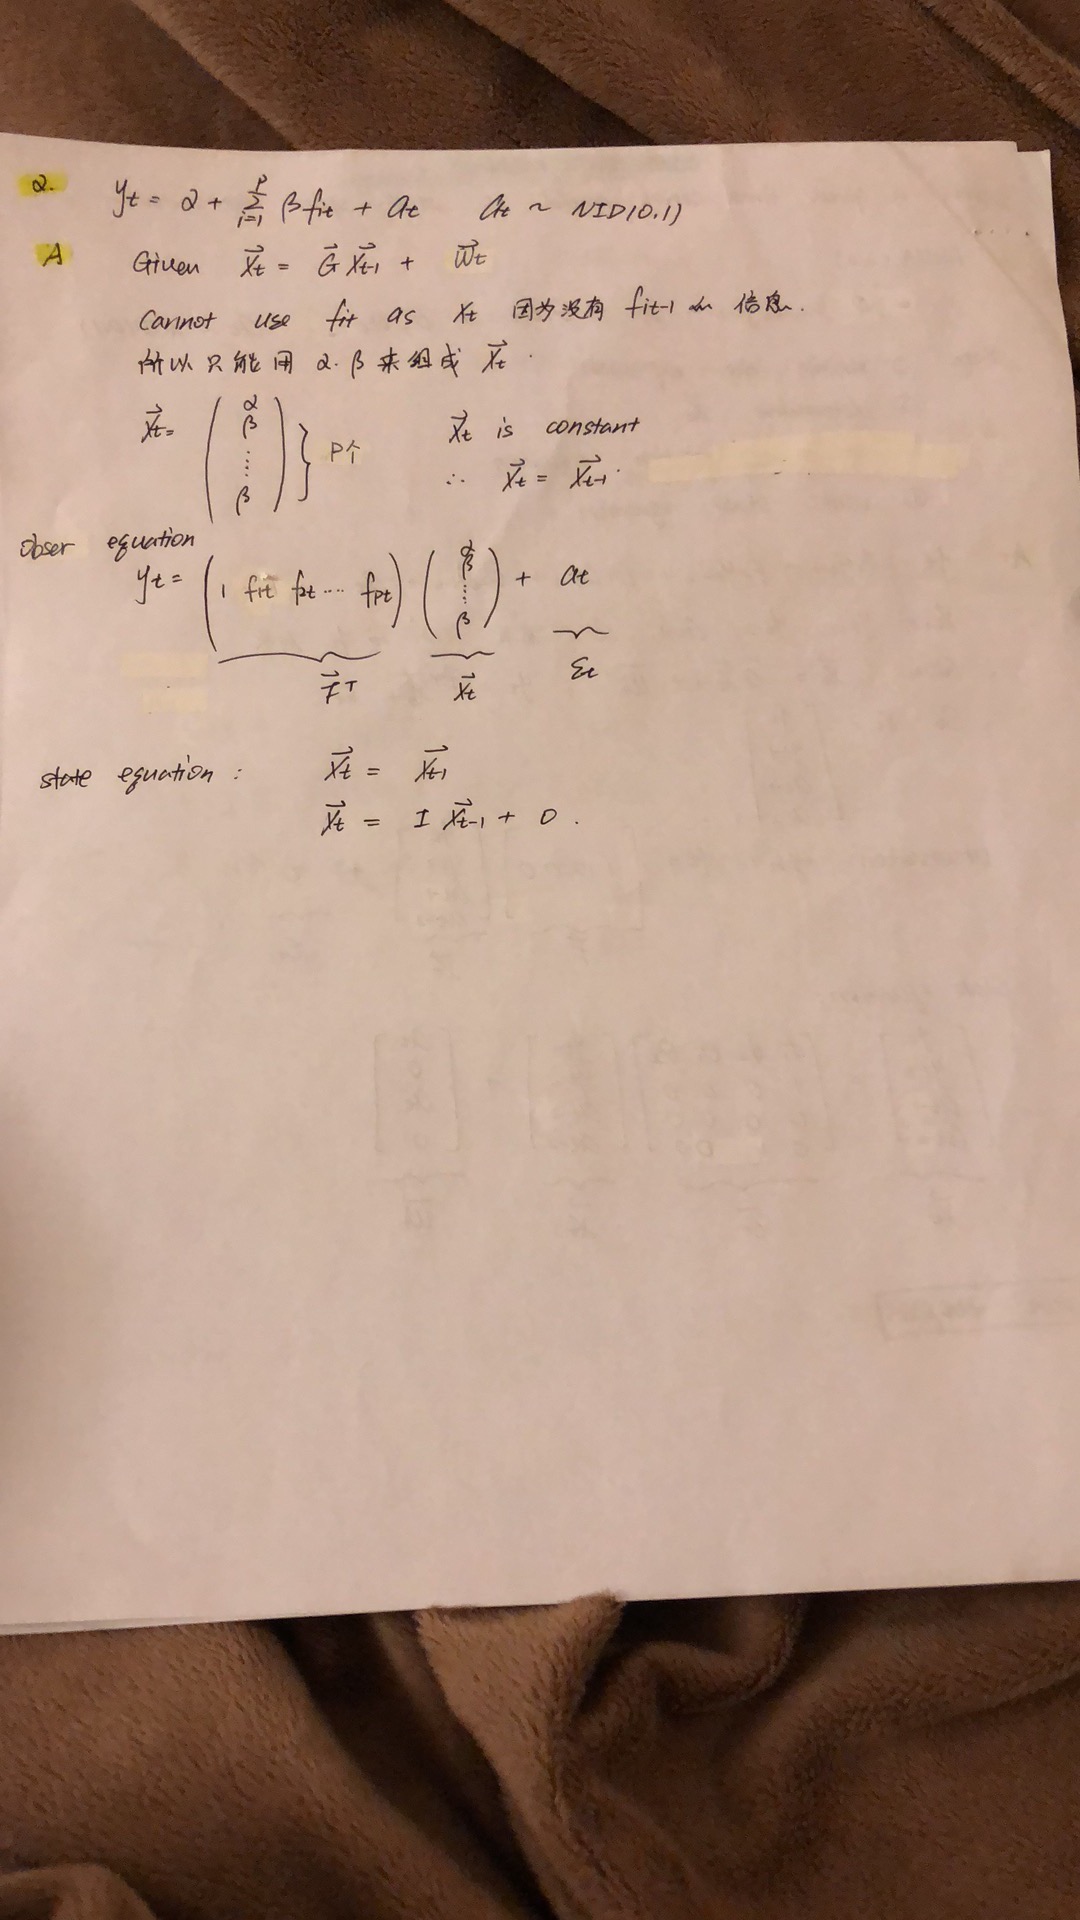 2. yt = α + Σ_{i=1}^{p} β fit + at at ~ NID(0,1)
A Given X⃗t = G⃗ X⃗t-1 + W⃗t
Cannot use fit as Xt 因为没有 fit-1 的 信息.
所以只能用 α. β 来组成 X⃗t.
X⃗t = ( α β .... β ) } P个 X⃗t is constant
∴ X⃗t = X⃗t-1.
obser equation
yt = ( 1 f1t f2t .... fpt ) ( α β .... β ) + at
F⃗T X⃗t εt
state equation : X⃗t = X⃗t-1
X⃗t = I X⃗t-1 + 0 .